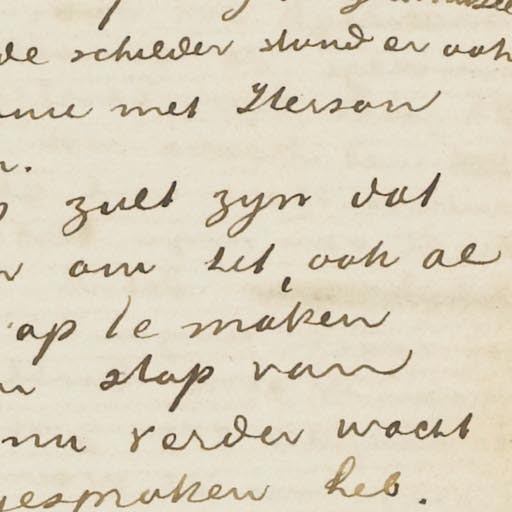 de schilder stond er ook
met Iterson
zult zyn dat
om het, ook al
op te maken
stap van
nu verder wacht
gesproken heb.